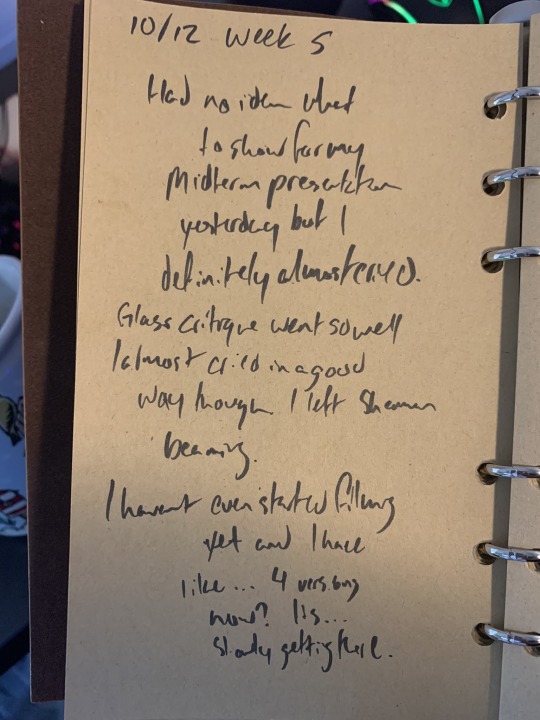 10/12 week 5
Had no idea what
to show for my
Midterm presentation
yesterday but I
definitely almost cried.
Glass critique went so well
I almost cried in a good
way though. I left Sherman
beaming.
I havent even started filming
yet and I have
like... 4 versions
now? Its...
slowly getting there.